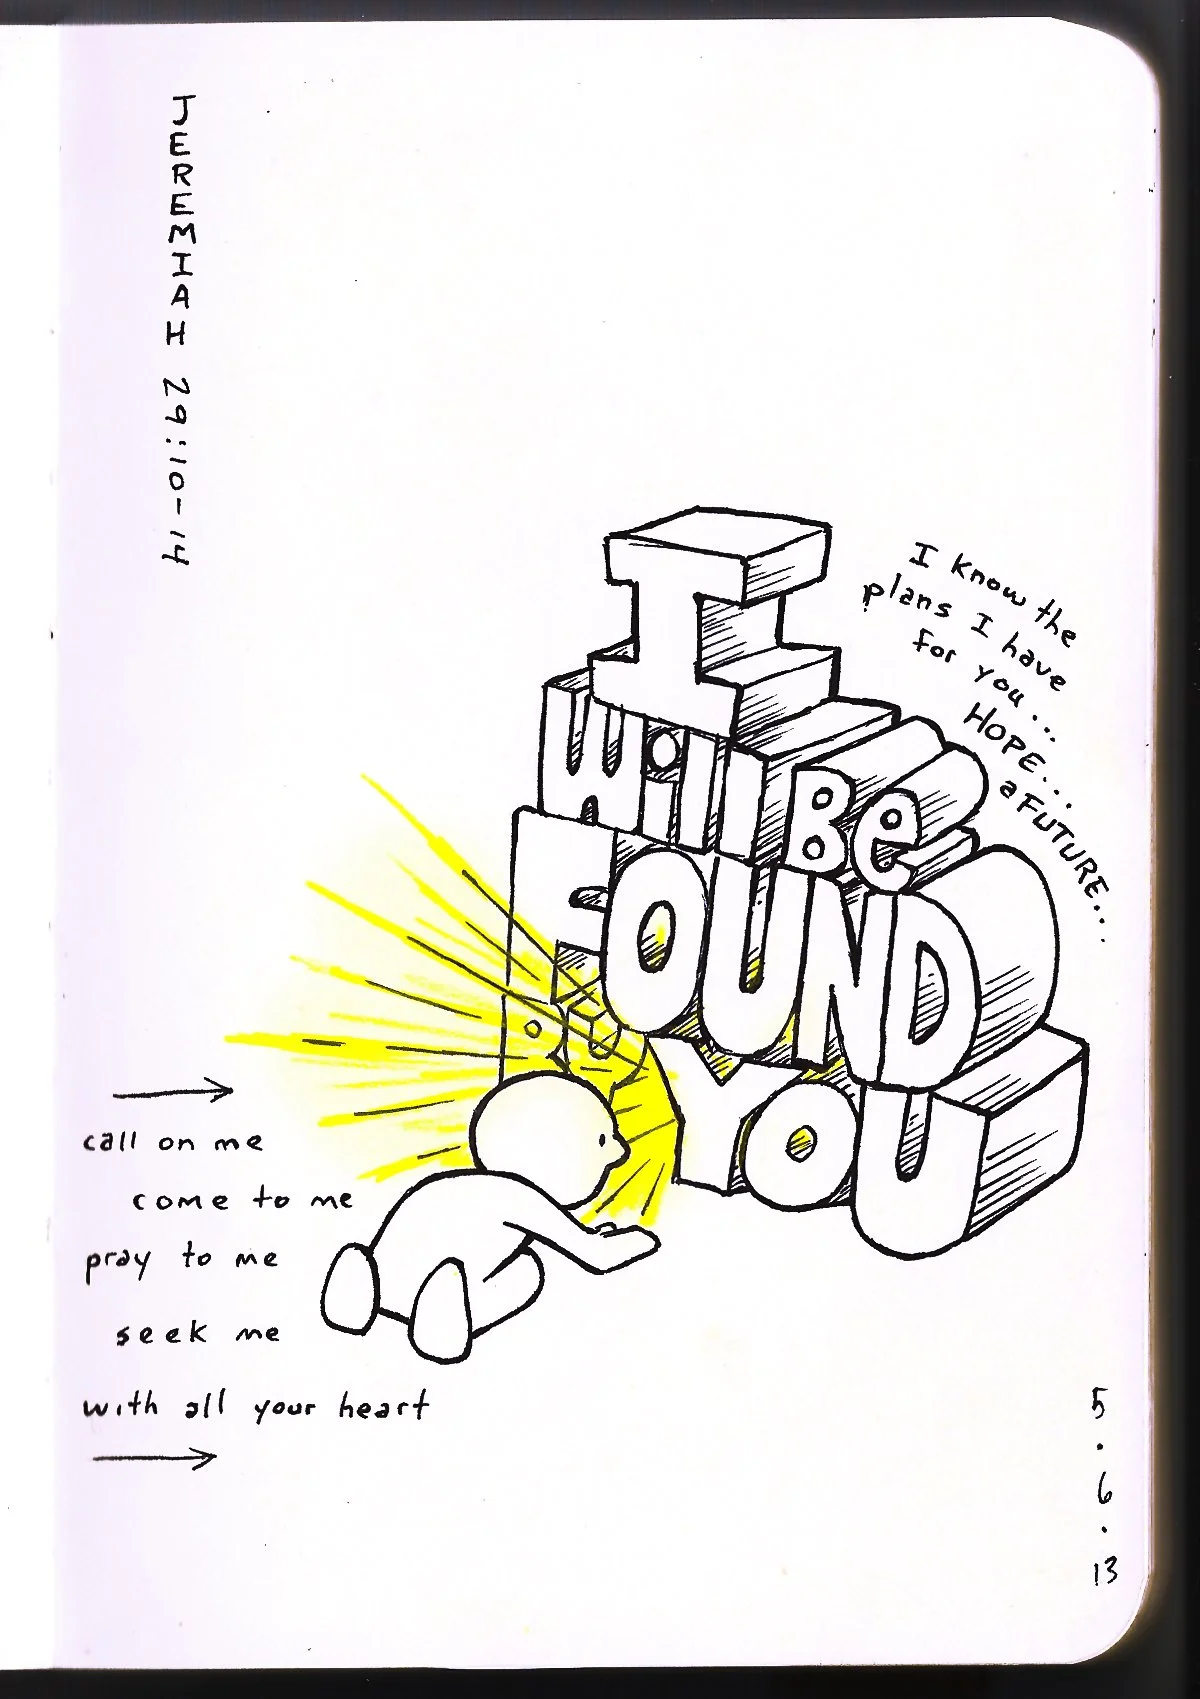 JEREMIAH 29:10-14
I know the
plans I have
for you...
HOPE...
a FUTURE...
I
Will Be
FOUND
By YOU
call on me
come to me
pray to me
seek me
with all your heart
5.6.13